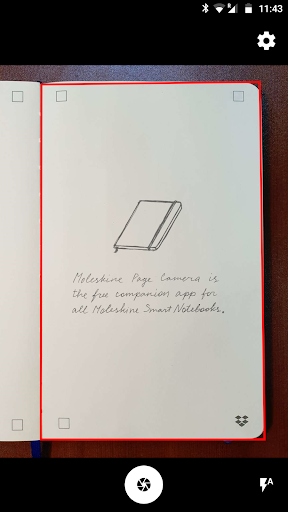 11:43
Moleskine Page Camera is
the free companion app for
all Moleskine Smart Notebooks.
A